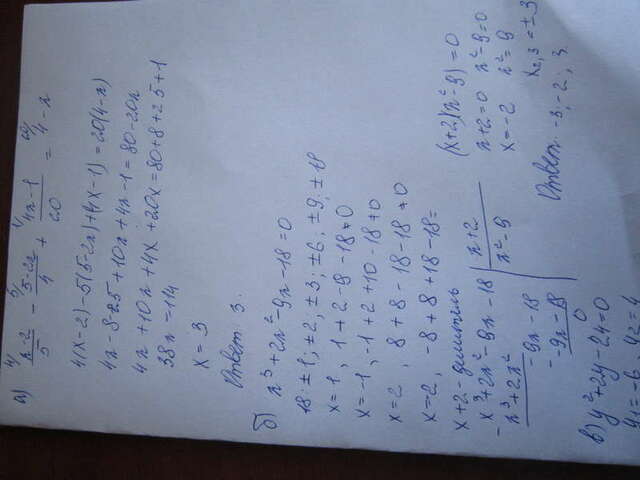 а) (x-2)/5 - (5-2x)/4 + (4x-1)/20 = 4-x
4(x-2)-5(5-2x)+(4x-1)=20(4-x)
4x-8-25+10x+4x-1=80-20x
4x+10x+4x+20x=80+8+25+1
38x=114
x=3
Ответ: 3.
б) x³+2x²-9x-18=0
18: ±1; ±2; ±3; ±6; ±9; ±18
x=1, 1+2-9-18≠0
x=-1, -1+2+10-18≠0
x=2, 8+8-18-18≠0
x=-2, -8+8+18-18=
x+2 - делитель
- x³+2x²-9x-18 | x+2
x³+2x² | x²-9
-9x-18
- -9x-18
0
(x+2)(x²-9)=0
x+2=0 x²-9=0
x=-2 x²=9
x₂,₃=±3
Ответ: -3; -2; 3.
в) y²+2y-24=0